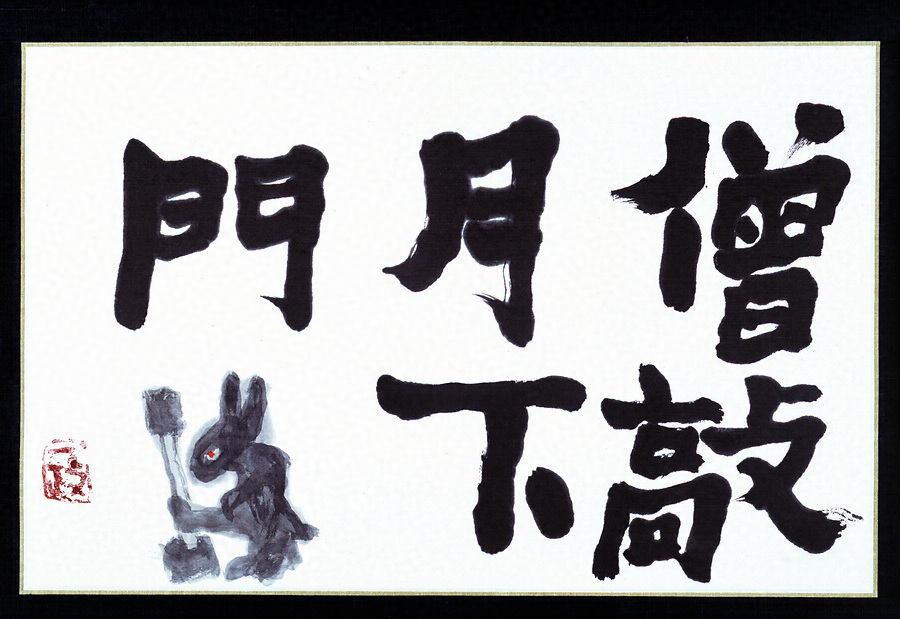 僧敲
月下
門